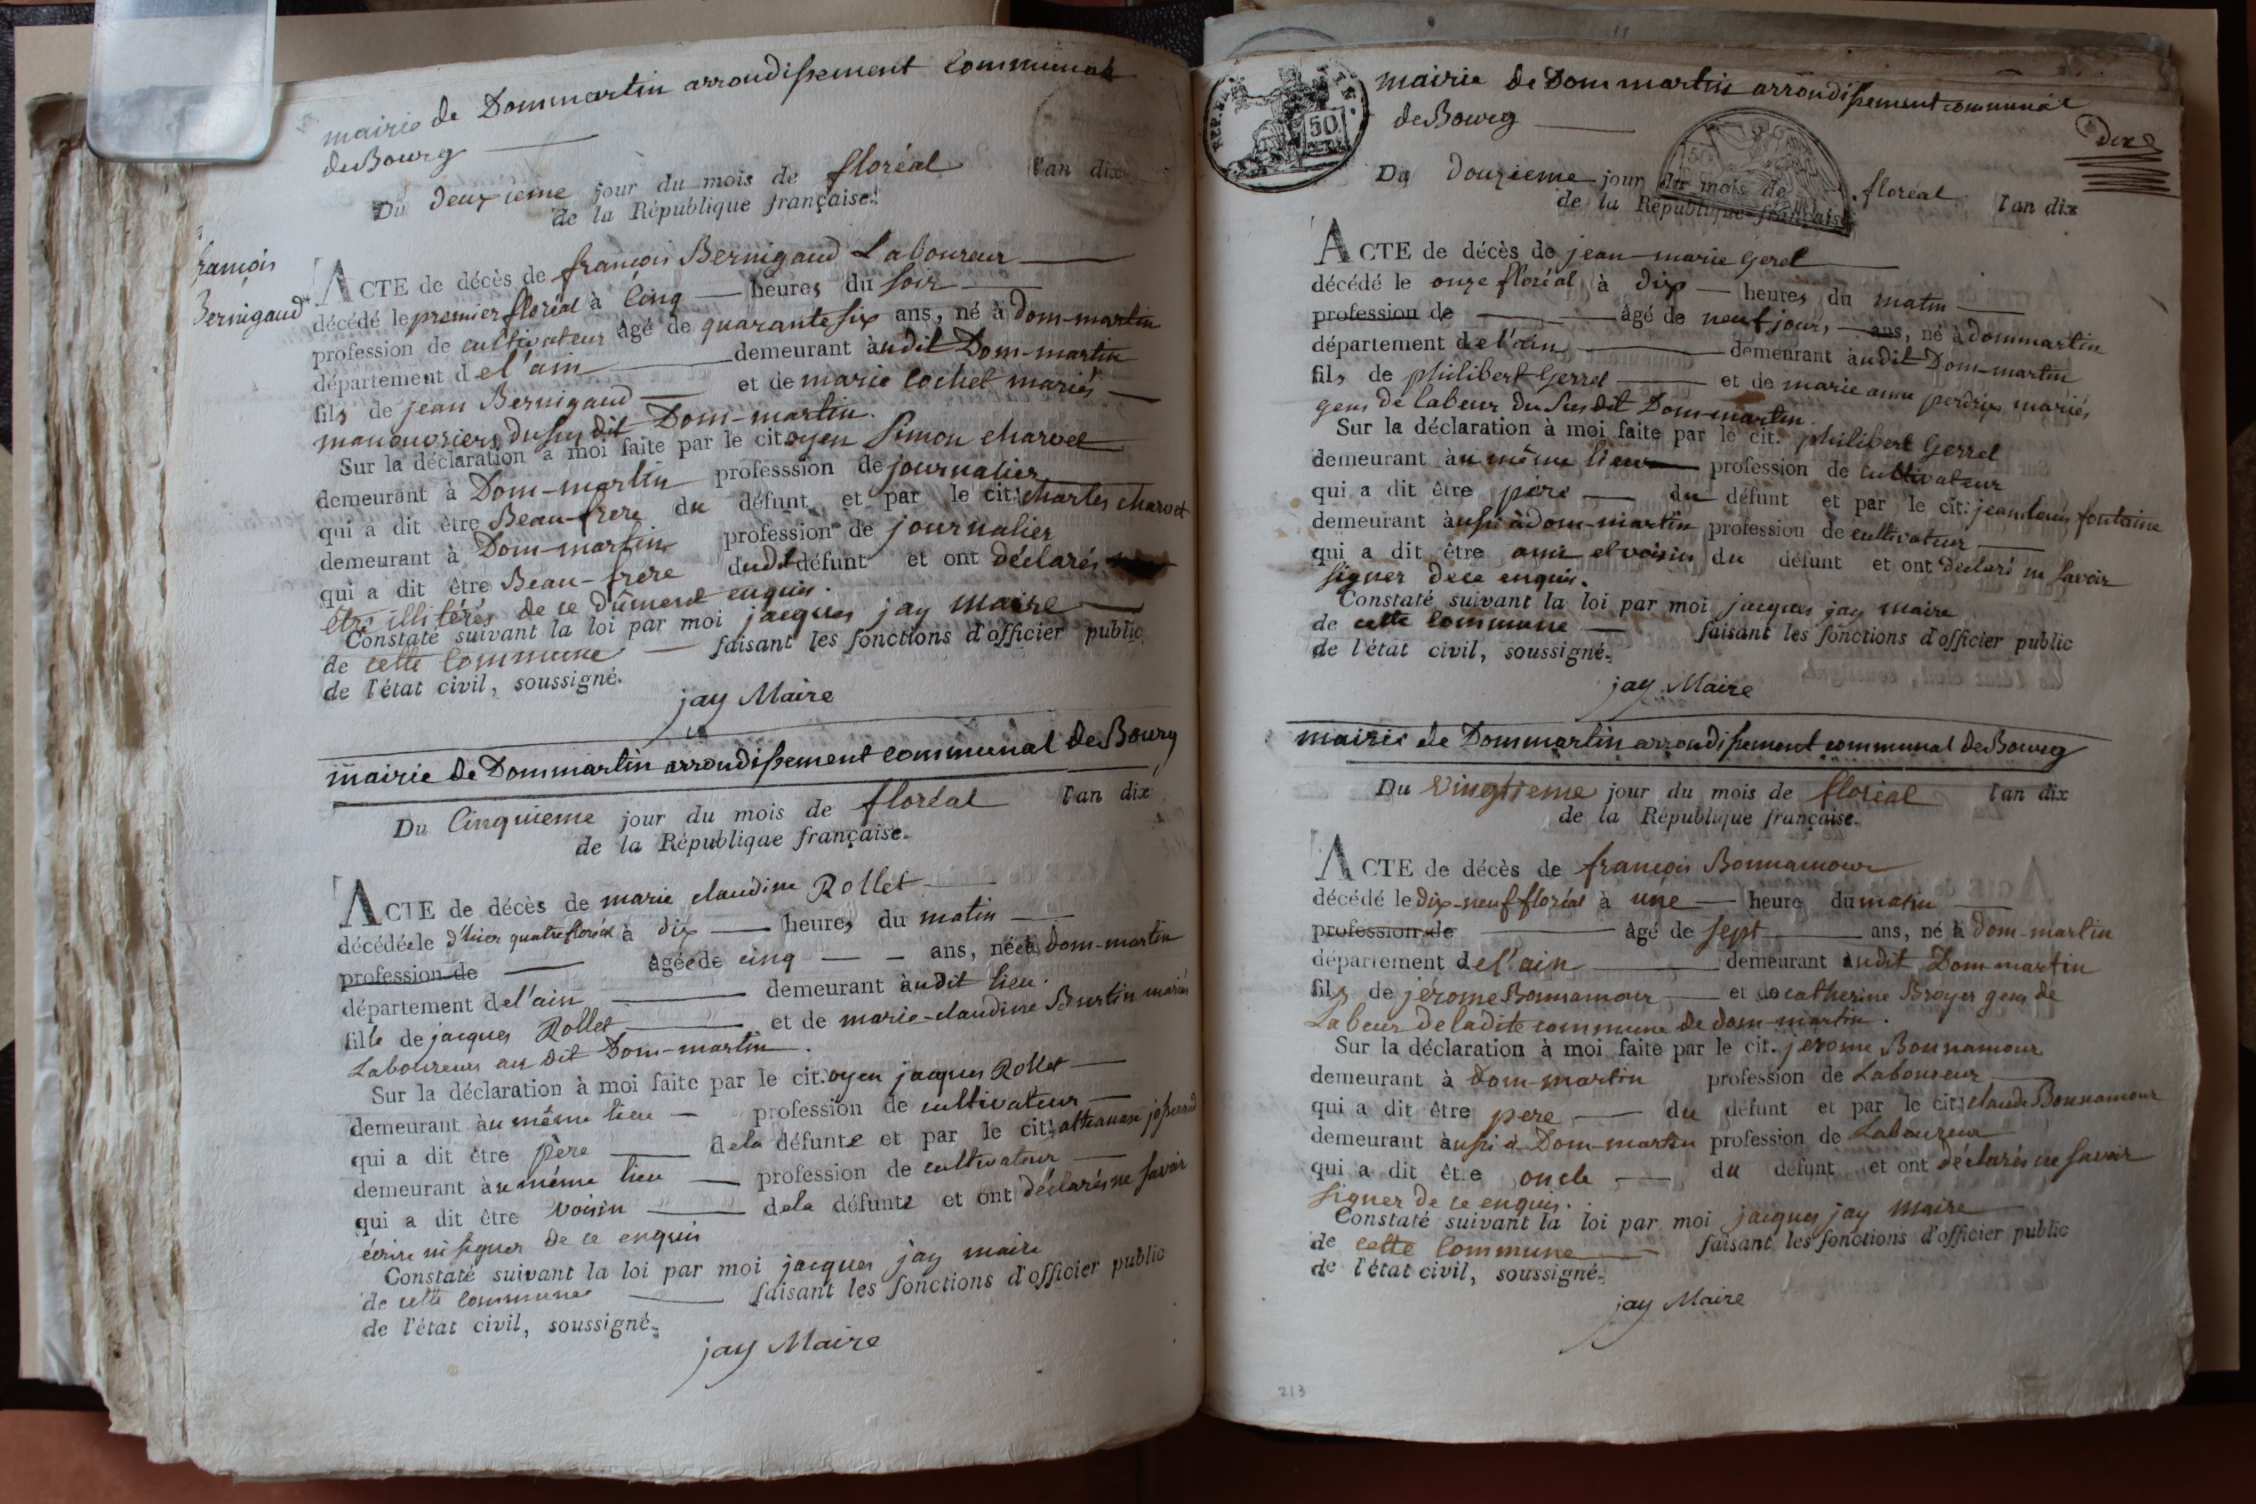 mairie de Dommartin arrondissement Communal
de Bourg
Du deuxieme jour du mois de floréal l'an dix
de la République française.
françois
Bernigaud
ACTE de décès de françois Bernigaud Laboureur
décédé le premier floréal à Cinq heures du soir
profession de cultivateur âgé de quarante six ans, né à dom-martin
département de l'ain demeurant audit Dom-martin
fils de jean Bernigaud et de marie Cochet mariés
manouvriers du sus dit Dom-martin.
Sur la déclaration à moi faite par le citoyen Simon charvet
demeurant à Dom-martin professsion de journalier
qui a dit être Beau-frere du défunt et par le cit: charles charvet
demeurant à Dom-martin profession de journalier
qui a dit être Beau-frere dudt défunt et ont déclarés
être illitérés de ce dûment enquis.
Constaté suivant la loi par moi jacques jay maire
de cette Commune faisant les fonctions d'officier public
de l'état civil, soussigné.
jay Maire
mairie de Dommartin arrondissement communal de Bourg
Du Cinquieme jour du mois de floréal l'an dix
de la République française.
ACTE de décès de marie claudine Rollet
décédée le d'hier quatre floréal à dix heures du matin
profession de âgée de cinq ans, née à dom-martin
département de l'ain demeurant audit lieu.
fille de jacques Rollet et de marie-claudine Burtin mariés
Laboureurs au dit Dom-martin.
Sur la déclaration à moi faite par le cit.oyen jacques Rollet
demeurant au même lieu profession de cultivateur
qui a dit être père dela défunte et par le cit:
demeurant au même lieu profession de cultivateur
qui a dit être voisin dela défunte et ont déclarés ne savoir
écrire ni signer de ce enquis
Constaté suivant la loi par moi jacques jay maire
de cette commune faisant les fonctions d'officier public
de l'état civil, soussigné.
jay Maire
REP. F
50
mairie de Dommartin arrondissement communal
de Bourg
dix
Du Douzieme jour du mois de floréal l'an dix
de la République française
ACTE de décès de jean-marie Gerel
décédé le onze floréal à dix heures du matin
profession de âgé de neuf jours, ans, né à dommartin
département de l'ain demeurant audit Dom-martin
fils de philibert Gerrel et de marie anne perdrix mariés
gens de labeur du susdit Dom-martin.
Sur la déclaration à moi faite par le cit. philibert Gerrel
demeurant au même lieu profession de cultivateur
qui a dit être père du défunt et par le cit: jean louis fontaine
demeurant aussi à dom-martin profession de cultivateur
qui a dit être ami et voisin du défunt et ont déclaré ne savoir
signer de ce enquis.
Constaté suivant la loi par moi jacques jay maire
de cette commune faisant les fonctions d'officier public
de l'état civil, soussigné.
jay Maire
mairie de Dommartin arrondissement communal de Bourg
Du Vingtieme jour du mois de floréal l'an dix
de la République française.
ACTE de décès de françois Bonnamour
décédé le dix-neuf floréal à une heure du matin
profession de âgé de sept ans, né à dom-martin
département de l'ain demeurant audit Dom martin
fils de jérome Bonnamour et de catherine Broyer gens de
Labeur de ladite commune de dom-martin.
Sur la déclaration à moi faite par le cit. jerome Bonnamour
demeurant à Dom-martin profession de Laboureur
qui a dit être pere du défunt et par le cit: claude Bonnamour
demeurant aussi à Dom-martin profession de Laboureur
qui a dit être oncle du défunt et ont déclarés ne savoir
signer de ce enquis.
Constaté suivant la loi par moi jacques jay maire
de cette Commune faisant les fonctions d'officier public
de l'état civil, soussigné.
jay Maire
213